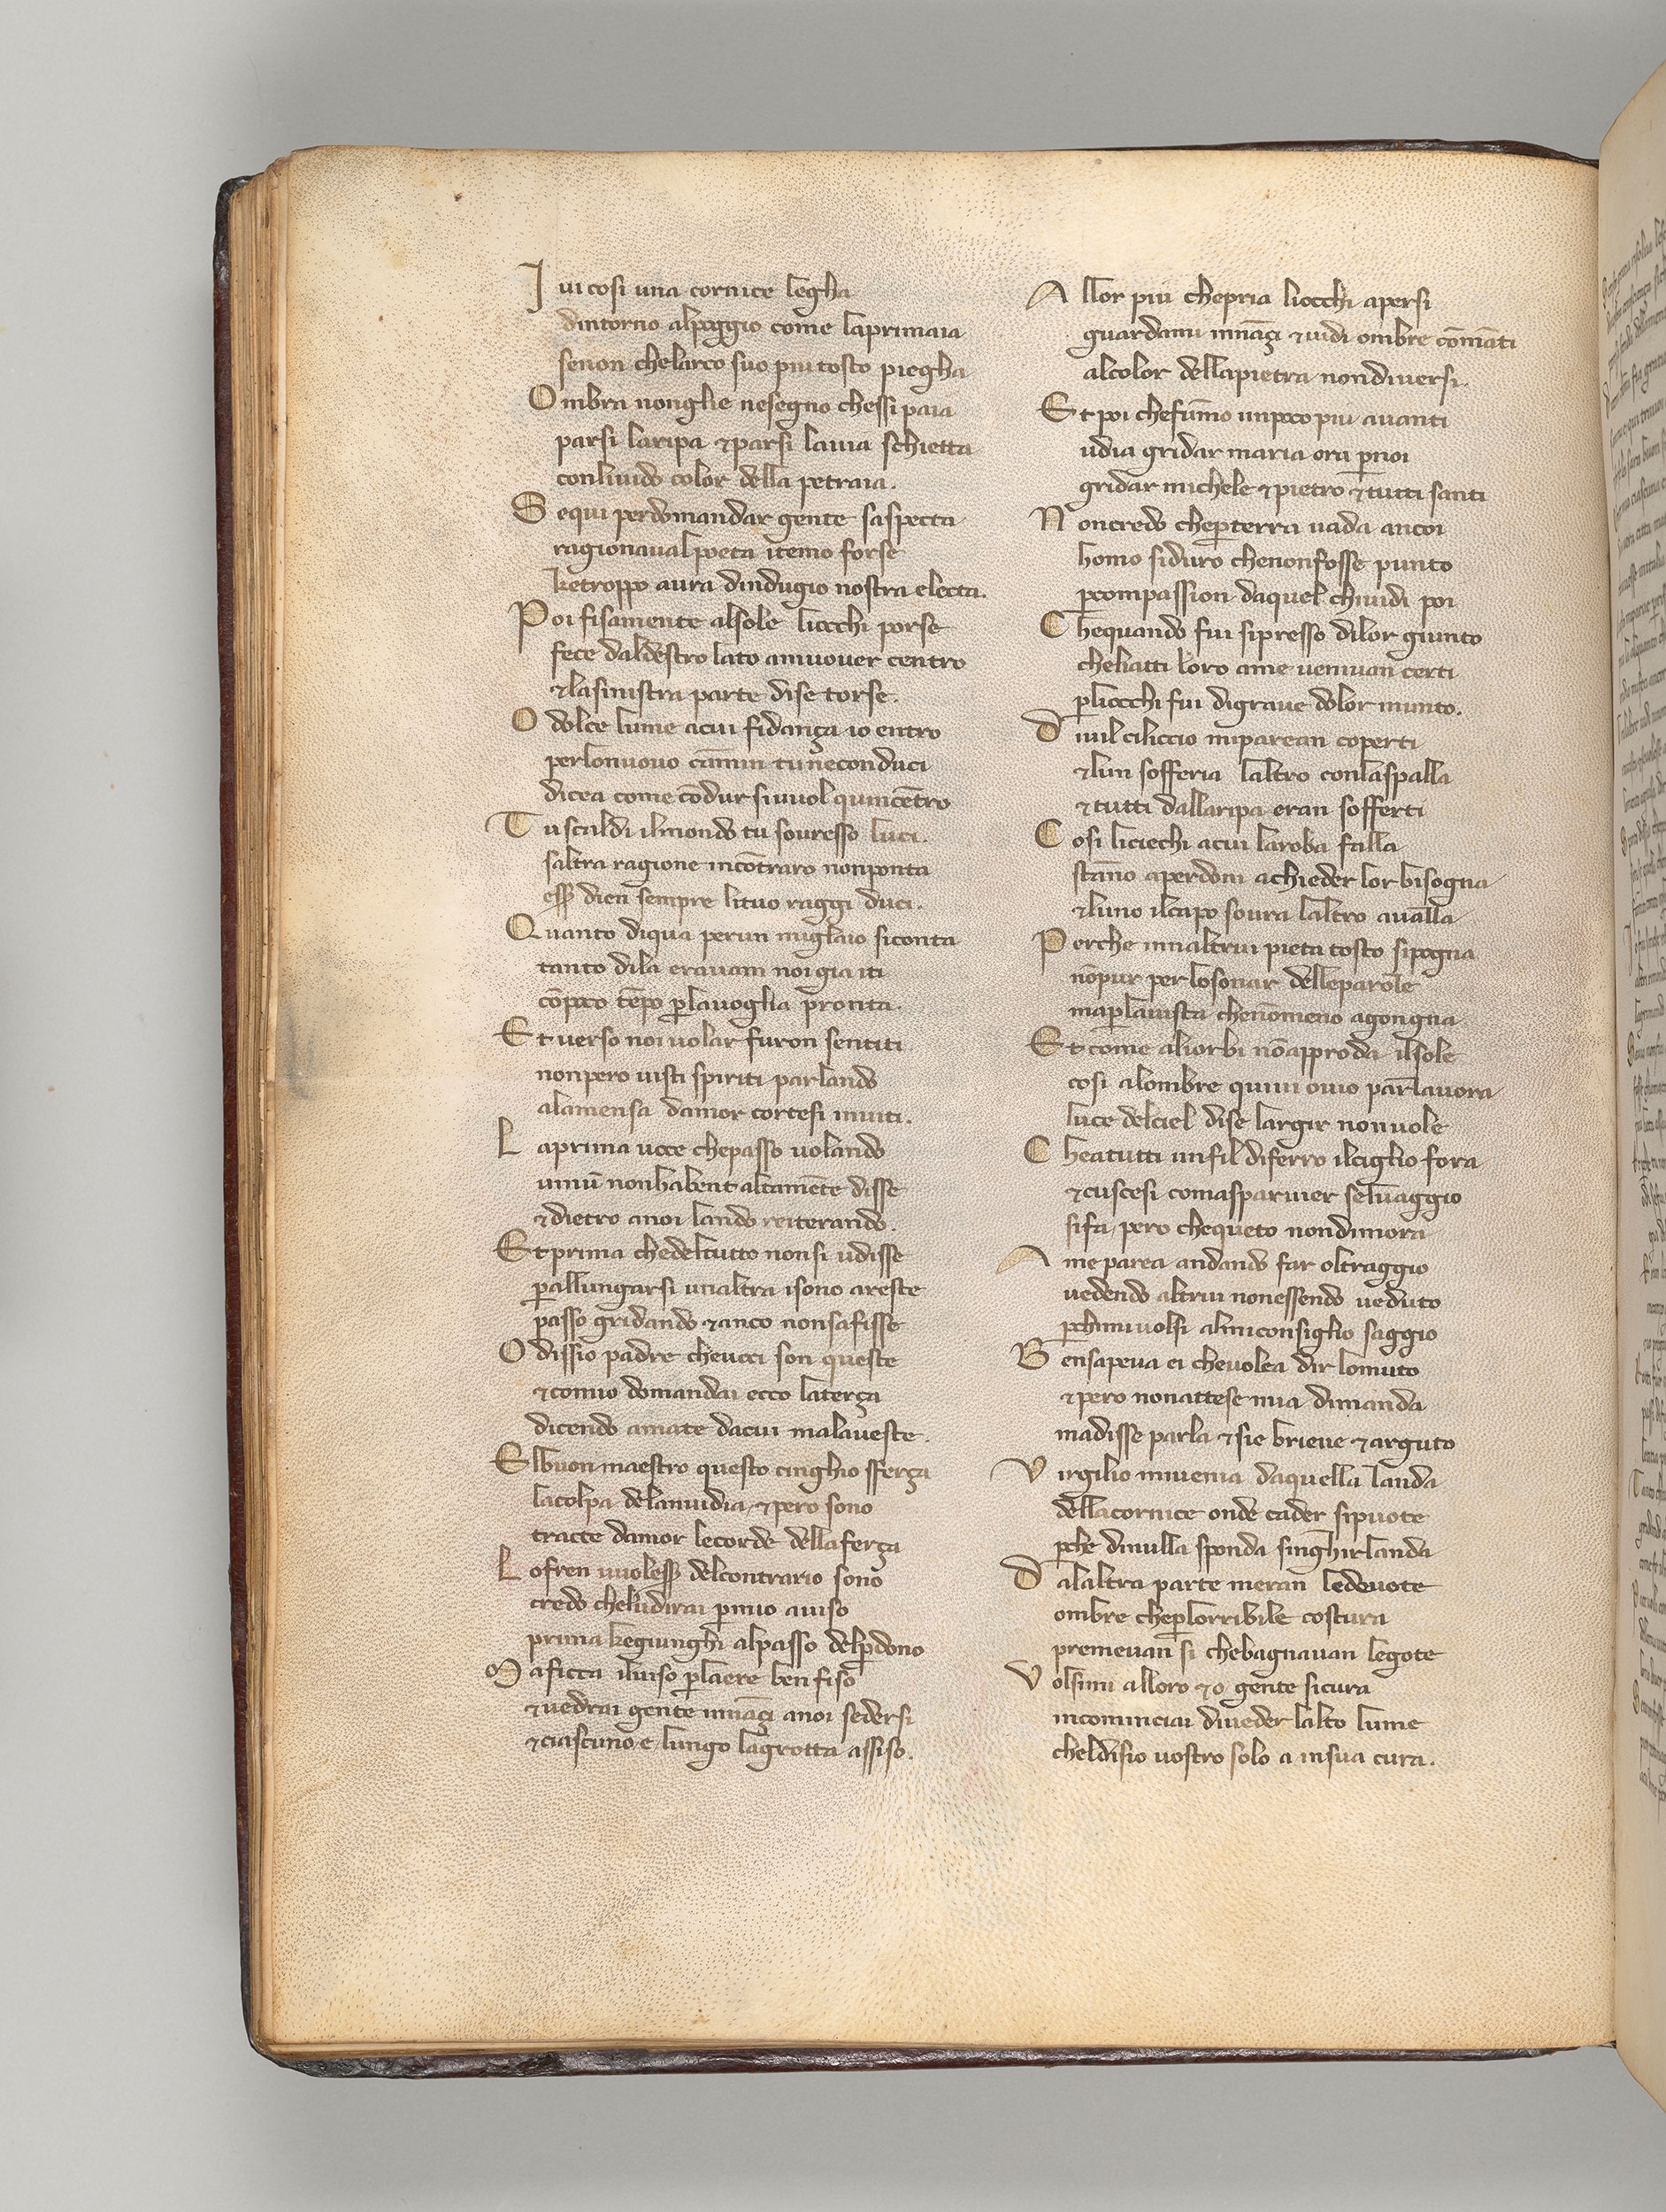 I vi cosi una cornice legha
dintorno alpoggio come laprimaia
senon chelarco suo piu tosto piegha
O mbra nonglie nesegno chessi paia
parsi laripa & parsi lavia schietta
conlivido color della petraia.
S equi perdomandar gente saspecta
ragionaval poeta i temo forse
ketroppo aura dindugio nostra electa.
P oi fisamente alsole liocchi porse
fece daldestro lato amuover centro
& lasinistra parte dise torse.
O dolce lume acui fidança io entro
perlonuovo camin tu neconduci
dicea come cōdur si vuol quincētro
T u scaldi ilmondo tu souresso luci.
saltra ragione incōtraro nonponta
esser dien sempre lituo raggi duci.
Q uanto diqua perun miglaio siconta
tanto dila eravam noi gia iti
cōpoco tēpo plavoglia pronta.
E t verso noi volar furon sentiti
nonpero visti spiriti parlando
alamensa damor cortesi inviti.
L aprima voce chepasso volando
vinū nonhabent altamēte disse
& dietro anoi lando reiterando.
E t prima chedeltutto nonsi udisse
pallungarsi unaltra isono areste
passo gridando & anco nonsafisse
O dissio padre chevoci son queste
& comio domandai ecco laterça
dicendo amate dacui malaveste.
E lbuon maestro questo cinghio sferça
lacolpa delanvidia & pero sono
tracte damor lecorde dellaferça
L ofren vuolesser delcontrario sono
credo cheludirai pmio aviso
prima kegiunghi alpasso delpdono
M a ficca ilviso plaere ben fiso
& vedrai gente innāçi anoi sedersi
& ciascuno e lungo lagrotta assiso.
A llor piu chepria liocchi apersi
guardami innāçi & vidi ombre cōmāti
alcolor dellapietra nondiversi.
E t poi chefumo unpoco piu avanti
udia gridar maria ora pnoi
gridar michele & pietro & tutti santi
N oncredo chepterra vada ancoi
homo siduro chenonfosse punto
pcompassion daquel chividi poi
C hequando fui sipresso dilor giunto
cheliatti loro ame venivan certi
pliocchi fui digrave dolor munto.
D ivil ciliccio miparean coperti
& lun sofferia laltro conlaspalla
& tutti dallaripa eran sofferti
C osi liciechi acui laroba falla
stāno aperdoni achieder lor bisogna
& luno ilcapo soura laltro avalla
P erche innaltrui pieta tosto sipogna
nōpur per losonar delleparole
maplavista chenōmeno agongna
E t come aliorbi nōapproda ilsole
cosi alombre quivi ovio parlavora
luce delciel dise largir nonvole
C heatutti unfil diferro ilciglio fora
& cuscesi comasparvier selvaggio
sifa pero chequeto nondimora
A me parea andando far oltraggio
vedendo altrui nonessendo veduto
pchimivolsi almiconsiglio saggio
B ensapeva ei chevolea dir lomuto
& pero nonattese mia dimanda
madisse parla & sie brieve & arguto
V irgilio mivenia daquella landa
dellacornice onde cader sipuote
pche dinulla sponda singhirlanda
D alaltra parte meran ledevote
ombre cheplorribile costura
premevan si chebagnavan legote
V olsimi alloro & o gente sicura
incominciai diveder lalto lume
cheldisio vostro solo a insua cura.